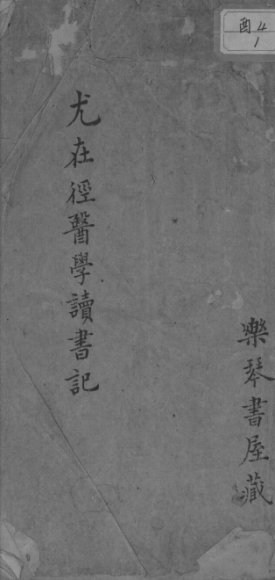 酉 4/1
尤在徑醫學讀書記
樂琴書屋藏